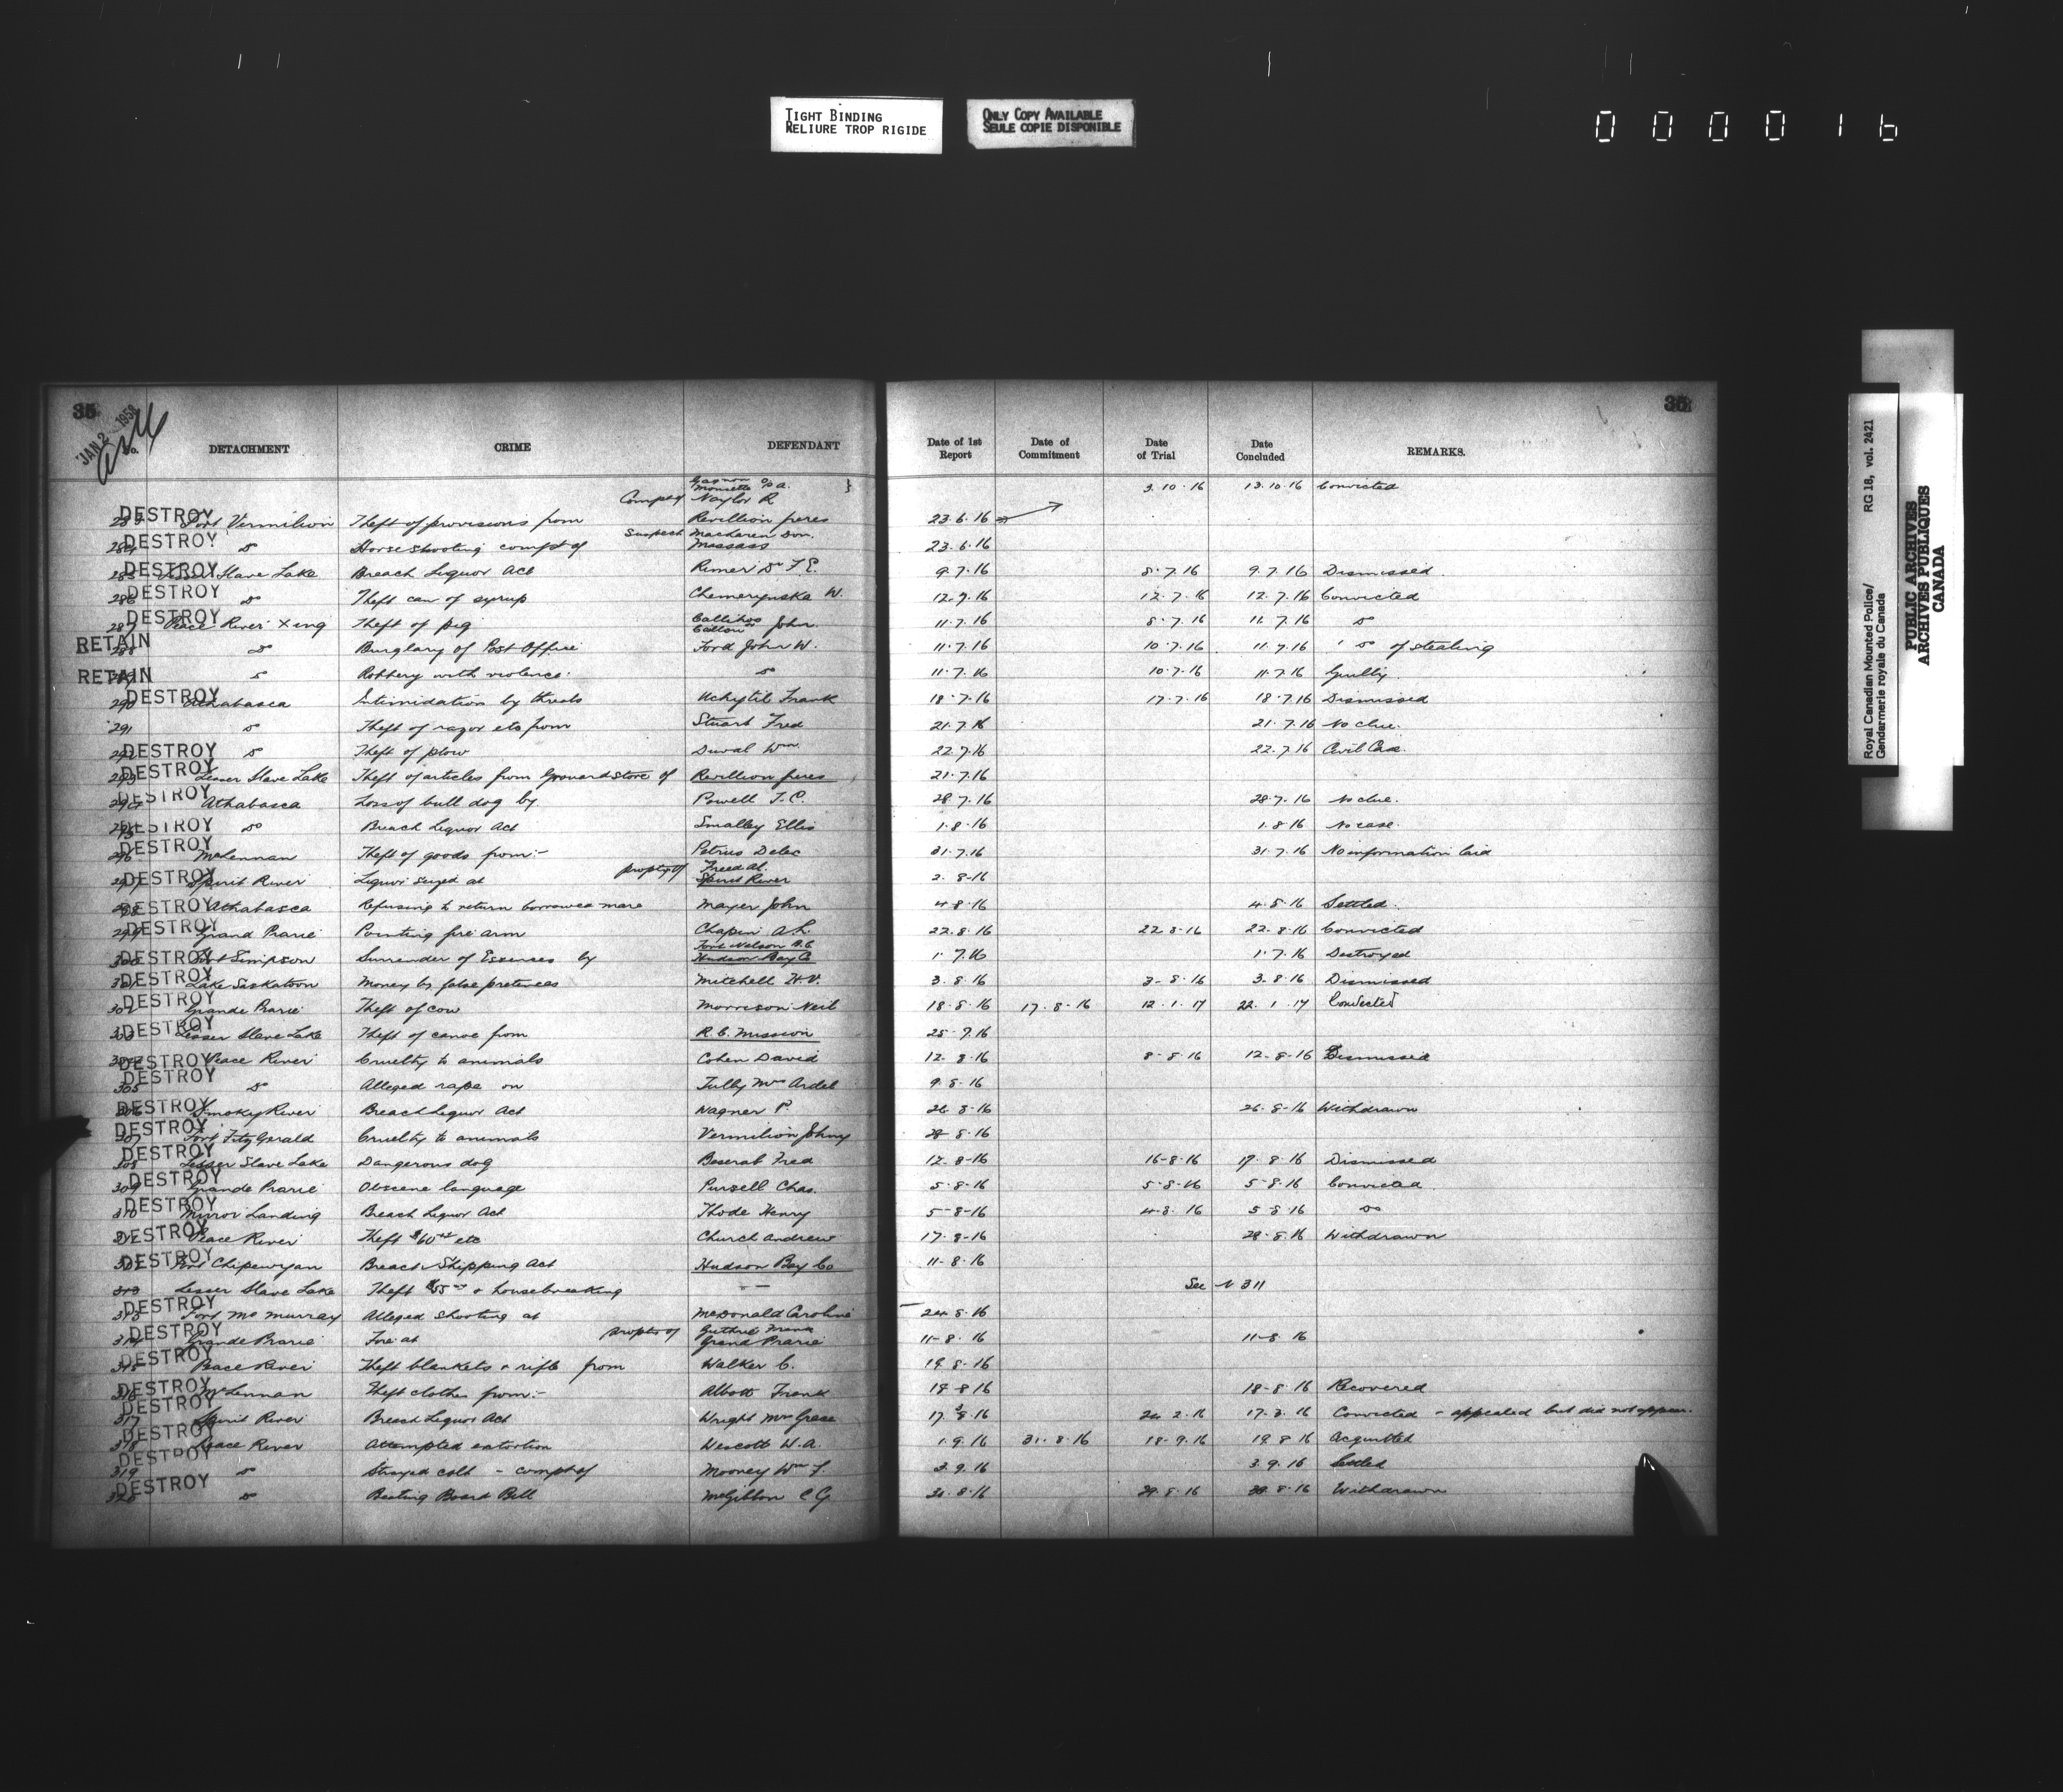 TIGHT BINDING
RELIURE TROP RIGIDE
ONLY COPY AVAILABLE
SEULE COPIE DISPONIBLE
000016
35
JAN 2 1959
No. DETACHMENT CRIME DEFENDANT Date of 1st Report Date of Commitment Date of Trial Date Concluded REMARKS.
Gagnon
3.10.16 13.10.16 Convicted
Compt of Naylor R
DESTROY 283 Fort Vermilion Theft of provisions from Revillion freres 23.6.16
Suspect MacLaren Don.
DESTROY 284 do Horse shooting compt of Massass 23.6.16
DESTROY 285 Lesser Slave Lake Breach Liquor Act Rimer Dr F E. 9.7.16 8.7.16 9.7.16 Dismissed
DESTROY 286 do Theft can of syrup W. 12.7.16 12.7.16 12.7.16 Convicted
DESTROY 287 Peace River Xing Theft of pig John 11.7.16 8.7.16 11.7.16 do
RETAIN 288 do Burglary of Post Office Ford John W. 11.7.16 10.7.16 11.7.16 do of stealing
RETAIN 289 do Robbery with violence. do 11.7.16 10.7.16 11.7.16 Guilty
DESTROY 290 Athabasca Intimidation by threats Uchytil Frank 18.7.16 17.7.16 18.7.16 Dismissed
291 do Theft of razor etc from Stuart Fred 21.7.16 21.7.16 No clue.
DESTROY 292 do Theft of plow Duval Wm 22.7.16 22.7.16 Civil Case.
DESTROY 293 Lesser Slave Lake Theft of articles from Grouard store of Revillion freres 21.7.16
DESTROY 294 Athabasca Loss of bull dog by Powell T.C. 28.7.16 28.7.16 No clue.
DESTROY 295 do Breach Liquor Act Smalley Ellis 1.8.16 1.8.16 No case.
DESTROY 296 McLennan Theft of goods from:- Petrus Delec 31.7.16 31.7.16 No information laid
propty of Freed Al.
DESTROY 297 Spirit River Liquor seized at Spirit River 2.8-16
DESTROY 298 Athabasca Refusing to return borrowed mare Mayer John 4.8.16 4.8.16 Settled.
DESTROY 299 Grand Prarie Pointing fire arm Chapin A.L. 22.8.16 22.8.16 22.8.16 Convicted
Fort Nelson B.C.
DESTROY 300 Fort Simpson Surrender of Essences by Hudson Bay Co 1.7.16 1.7.16 Destroyed
DESTROY 301 Lake Saskatoon Money by false pretences Mitchell H.V. 3.8.16 3-8-16 3.8.16 Dismissed
DESTROY 302 Grande Prarie Theft of cow Morrison Neil 18.8.16 17.8-16 12.1.17 22.1.17 Convicted
DESTROY 303 Lesser Slave Lake Theft of canoe from R.C. Mission 25-7.16
DESTROY 304 Peace River Cruelty to animals Cohen David 12.8.16 8-8.16 12-8-16 Dismissed
DESTROY 305 do Alleged rape on Tully Mrs Ardel 9.8.16
DESTROY 306 Smokey River Breach Liquor Act Wagner P. 26.8-16 26.8-16 Withdrawn
DESTROY 307 Fort FitzGerald Cruelty to animals Vermilion Johny 28-8-16
DESTROY 308 Lesser Slave Lake Dangerous dog Fred 17.8-16 16-8.16 17.8.16 Dismissed
DESTROY 309 Grande Prarie Obscene language Pursell Chas. 5-8-16 5-8-16 5-8.16 Convicted
DESTROY 310 Mirror Landing Breach Liquor Act Thode Henry 5-8-16 4-8.16 5.8.16 do
DESTROY 311 Peace River Theft $60 etc Church Andrew 17-8-16 28-8.16 Withdrawn
DESTROY 312 Fort Chipewyan Breach Shipping Act Hudson Bay Co 11-8.16
313 Lesser Slave Lake Theft & housebreaking See N 311
DESTROY 313 Fort McMurray Alleged shooting at McDonald Caroline 24.8.16
propty of Guthrie Frank
DESTROY 314 Grande Prarie Fire at Grand Prarie 11-8.16 11-8.16
DESTROY 315 Peace River Theft blankets & rifle from Walker C. 19.8-16
DESTROY 316 McLennan Theft clothes from:- Abbott Frank 19-8 16 18-8.16 Recovered
DESTROY 317 Spirit River Breach Liquor Act Wright Mrs Grace 17.8.16 24.2.16 17.3.16 Convicted - appealed but did not appear.
DESTROY 318 Peace River Attempted extortion Wescott W.A. 1.9.16 31.8.16 18-9.16 19.8.16 Acquitted
DESTROY 319 do Strayed colt - compt of Mooney Wm F. 3.9.16 3.9.16 Settled
DESTROY 320 do Beating Board Bill McGibbon C G. 31.8.16 29.8.16 30.8.16 Withdrawn
Royal Canadian Mounted Police/ RG 18, vol. 2421
Gendarmerie royale du Canada
PUBLIC ARCHIVES
ARCHIVES PUBLIQUES
CANADA